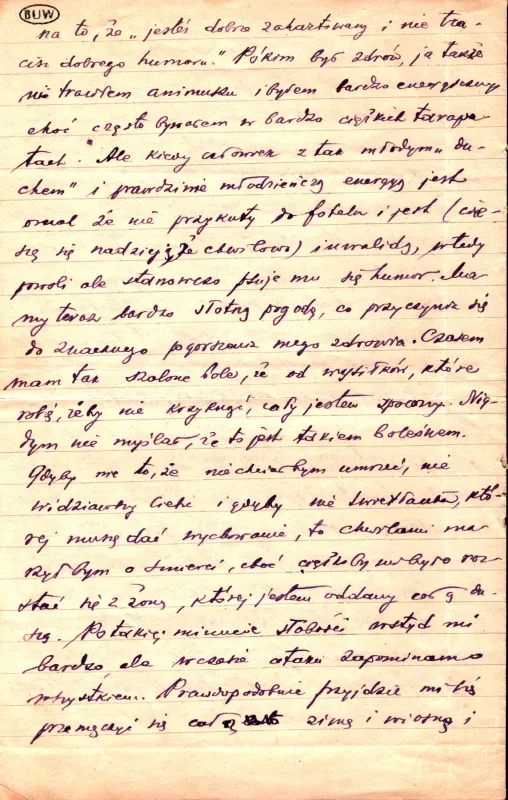 BUW
na to, że „jesteś dobrze zahartowany i nie tra-
cisz dobrego humoru." Pókim był zdrów, ja także
nie traciłem animuszu i byłem bardzo energiczny
choć często bywałem w bardzo ciężkich tarapa-
tach. Ale kiedy człowiek z tak młodym „du-
chem" i prawdziwie młodzieńczą energją jest
omal że nie przykuty do fotelu i jest (cie-
szę się nadzieją, że chwilowo) inwalidą, wtedy
powoli ale stanowczo psuje mu się humor. Ma-
my teraz bardzo słotną pogodę, co przyczynia się
do znacznego pogorszenia mego zdrowia. Czasem
mam tak szalone bole, że od wysiłków, które
robię, żeby nie krzyknąć, cały jestem spocony. Nig-
dym nie myślał, że to jest takiem bolesnem.
Gdyby nie to, że nie chciałbym umrzeć, nie
widziawszy Ciebie i gdyby nie Swietłanka, któ-
rej muszę dać wychowanie, to chwilami ma-
rzyłbym o śmierci, choć ciężkoby mi było roz-
stać się z żoną, której jestem oddany całą du-
szą. Po takiej minucie słabości wstyd mi
bardzo ale w czasie ataku zapominam o
wszystkiem. Prawdopodobnie przyjdzie mi się
przemęczyć się całą zimę i wiosnę i